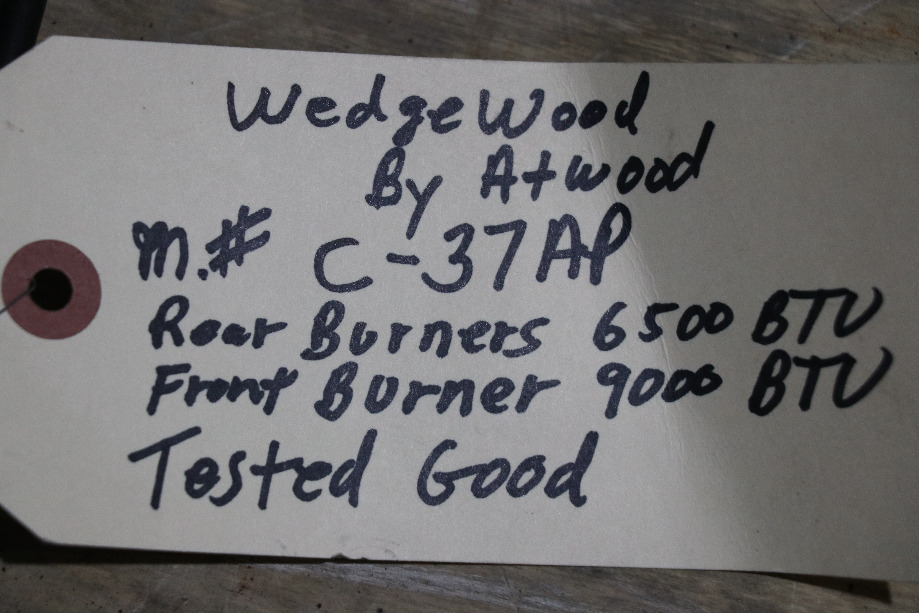 WedgeWood
By Atwood
M.# C-37AP
Rear Burners 6500 BTU
Front Burner 9000 BTU
Tested Good